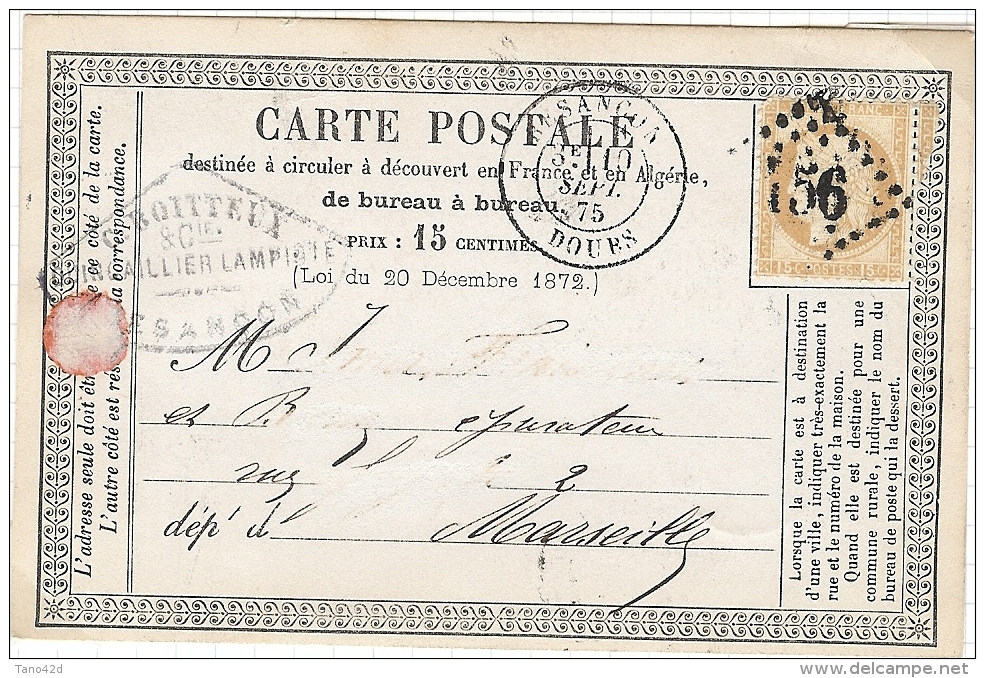 CARTE POSTALE
destinée à circuler à découvert en France et en Algérie,
de bureau à bureau
PRIX : 15 CENTIMES
(Loi du 20 Décembre 1872.)
BESANÇON
3E 10
SEPT.
75
DOUBS
FRANC
15 C POSTES 15 C
56
& CIE.
LAMPISTE
BESANÇON
L'adresse seule doit être ce côté de la carte.
L'autre côté est rés la correspondance.
M
et épurateur
2
dépt d
Marseille
Lorsque la carte est à destination
d'une ville, indiquer très-exactement la
rue et le numéro de la maison.
Quand elle est destinée pour une
commune rurale, indiquer le nom du
bureau de poste qui la dessert.
Tano42d
delcampe.net